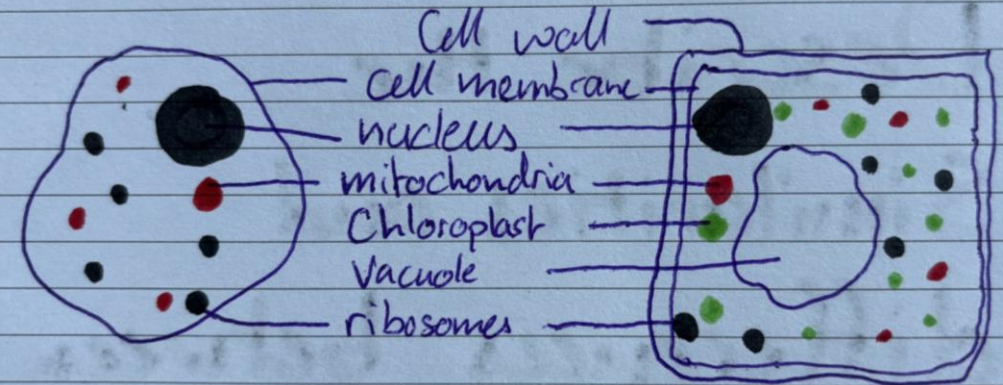 Cell wall
cell membrane
nucleus
mitochondria
Chloroplast
Vacuole
ribosomes